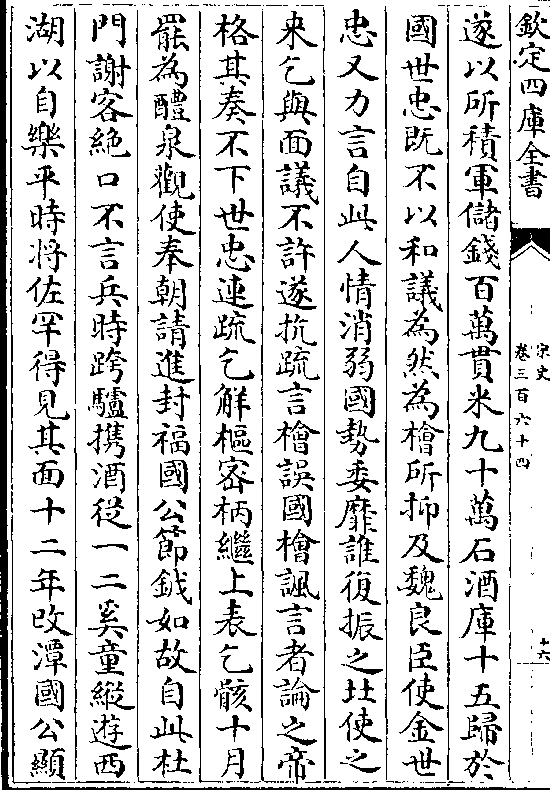 欽定四庫全書
宋史
卷三百六十四
十六
遂以所積軍儲錢百萬貫米九十萬石酒庫十五歸於
國世忠既不以和議為然為檜所抑及魏良臣使金世
忠又力言自此人情消弱國勢委靡誰復振之北使之
来乞與面議不許遂抗疏言檜誤國檜諷言者論之帝
格其奏不下世忠連疏乞解樞密柄繼上表乞骸十月
罷為醴泉觀使奉朝請進封福國公節鉞如故自此杜
門謝客絶口不言兵時跨驢携酒從一二奚童縱遊西
湖以自樂平時将佐罕得見其面十二年改潭國公顯